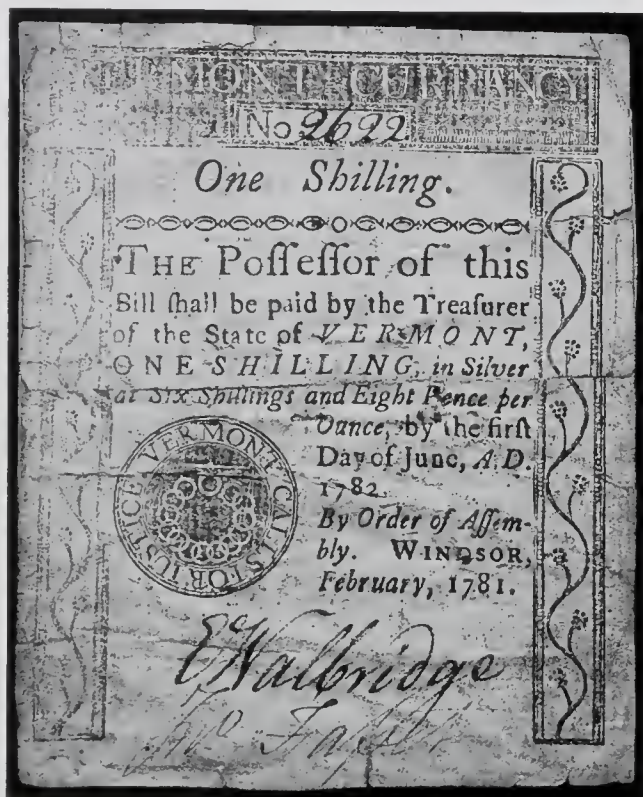 VERMONT CURRANCY
No 2622
One Shilling.
THE Poſſeſſor of this
Bill ſhall be paid by the Treaſurer
of the State of VERMONT,
ONE SHILLING, in Silver
at Six Shillings and Eight Pence per
Ounce, by the firſt
Day of June, A.D.
1782.
By Order of Aſſem-
bly. WINDSOR,
February, 1781.
VERMONT CALLS FOR JUSTICE
E Walbridge